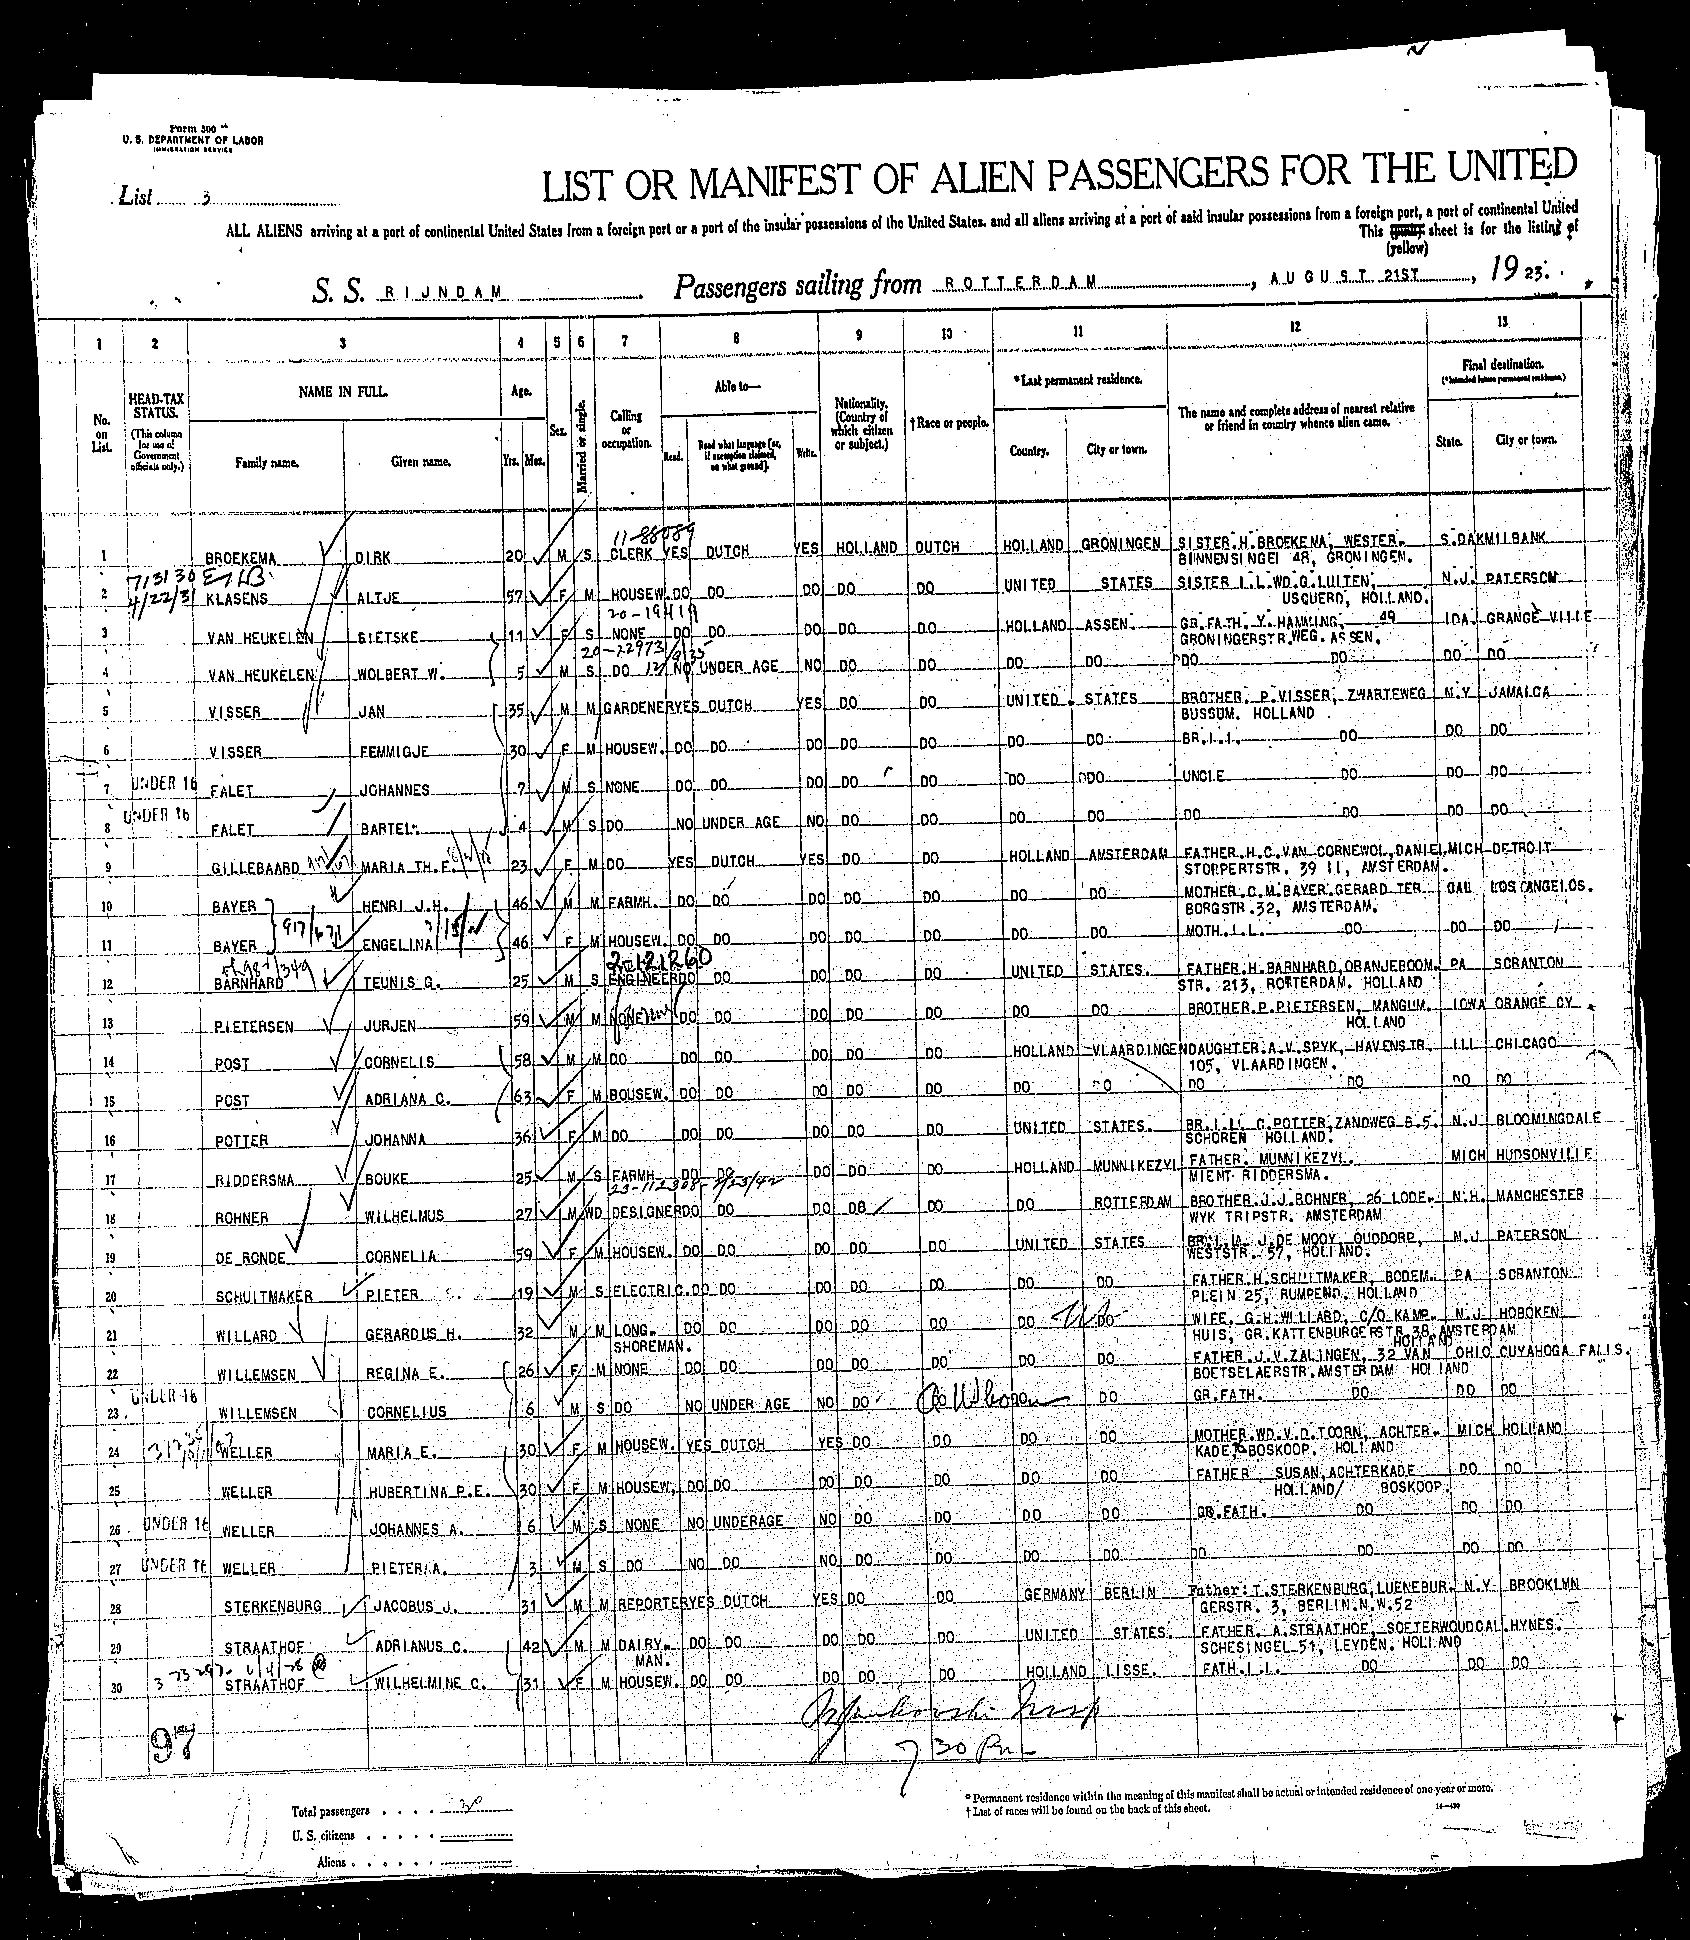 Form 500
U. S. DEPARTMENT OF LABOR
IMMIGRATION SERVICE
List 3
LIST OR MANIFEST OF ALIEN PASSENGERS FOR THE UNITED
ALL ALIENS arriving at a port of continental United States from a foreign port or a port of the insular possessions of the United States, and all aliens arriving at a port of said insular possessions from a foreign port, a port of continental United
This sheet is for the listing of
(yellow)
S. S. RIJNDAM Passengers sailing from ROTTERDAM , AUGUST 21ST , 19 23.
1 2 3 4 5 6 7 8 9 10 11 12 13
No. on List. HEAD-TAX STATUS. (This column for use of Government officials only.) NAME IN FULL. Family name. Given name. Age. Yrs. Mos. Sex. Married or single. Calling or occupation. Able to— Read. Read what language (or, if exemption claimed, on what ground). Write. Nationality. (Country of which citizen or subject.) †Race or people. *Last permanent residence. Country. City or town. The name and complete address of nearest relative or friend in country whence alien came. Final destination. (*Intended future permanent residence.) State. City or town.
11-88089
1 BROEKEMA DIRK 20 M S CLERK YES DUTCH YES HOLLAND DUTCH HOLLAND GRONINGEN SISTER.H.BROEKEMA, WESTER- S.DAK MILBANK
BINNENSINGEL 48, GRONINGEN.
7/3/30
2 4/22/31 KLASENS ALTJE 57 F M HOUSEW. DO DO DO DO DO UNITED STATES SISTER I.L.WD.G.LUITEN, N.J. PATERSON
USQUERD, HOLLAND.
20-19419
3 VAN HEUKELEN SIETSKE 11 F S NONE DO DO DO DO DO HOLLAND ASSEN. GR.FATH. Y. HAMMING, 49 IDA. GRANGE VILLE
GRONINGERSTR.WEG. ASSEN.
20-22973
4 VAN HEUKELEN WOLBERT W. 5 M S DO NO UNDER AGE NO DO DO DO DO DO DO DO DO
5 VISSER JAN 35 M M GARDENER YES DUTCH YES DO DO UNITED STATES BROTHER. P.VISSER, ZWARTEWEG N.Y JAMAICA
BUSSUM. HOLLAND
6 VISSER FEMMIGJE 30 F M HOUSEW. DO DO DO DO DO DO DO BR.I.L. DO DO DO
7 UNDER 16 FALET JOHANNES 7 M S NONE DO DO DO DO DO DO DO UNCLE DO DO DO
8 UNDER 16 FALET BARTEL. 4 M S DO NO UNDER AGE NO DO DO DO DO DO DO DO DO
9 GILLEBAARD MARIA TH.F. 23 F M DO YES DUTCH YES DO DO HOLLAND AMSTERDAM FATHER.H.C.VAN CORNEWOL,DANIEL MICH DETROIT
STOPPERTSTR. 39 II, AMSTERDAM.
10 BAYER HENRI J.H. 46 M M FARMH. DO DO DO DO DO DO DO MOTHER.C.M.BAYER.GERARD TER CAL LOS ANGELOS.
BORGSTR.32, AMSTERDAM.
11 BAYER ENGELINA 46 F M HOUSEW. DO DO DO DO DO DO DO MOTH.I.L. DO DO DO
2-121260
12 BARNHARD TEUNIS G. 25 M S ENGINEER DO DO DO DO DO UNITED STATES. FATHER.H.BARNHARD,ORANJEBOOM- PA SCRANTON
STR. 213, ROTTERDAM. HOLLAND
13 PIETERSEN JURJEN 59 M M NONE DO DO DO DO DO DO DO BROTHER.P.PIETERSEN, MANGUM. IOWA ORANGE CY
HOLLAND
14 POST CORNELIS 58 M M DO DO DO DO DO DO HOLLAND VLAARDINGEN DAUGHTER.A.V.SPYK, HAVENSTR. ILL CHICAGO
105, VLAARDINGEN.
15 POST ADRIANA C. 63 F M BOUSEW. DO DO DO DO DO DO DO DO DO DO DO
16 POTTER JOHANNA 36 F M DO DO DO DO DO DO UNITED STATES. BR.I.L. C.POTTER,ZANDWEG B.5. N.J BLOOMINGDALE
SCHOREN HOLLAND.
17 RIDDERSMA BOUKE 25 M S FARMH. DO DO DO DO DO HOLLAND MUNNIKEZYL FATHER. MUNNIKEZYL. MICH HUDSONVILLE
MIENT RIDDERSMA.
18 ROHNER WILHELMUS 27 M WD DESIGNER DO DO DO DO DO DO ROTTERDAM BROTHER.J.J.ROHNER, 26 LODE- N.H. MANCHESTER
WYK TRIPSTR. AMSTERDAM
19 DE RONDE CORNELIA 59 F M HOUSEW. DO DO DO DO DO UNITED STATES BR.I.L. J.DE MOOY, OUDDORP, N.J PATERSON
WESTSTR. 57, HOLLAND.
20 SCHUITMAKER PIETER 19 M S ELECTRIC. DO DO DO DO DO DO DO FATHER.H.SCHUITMAKER, BODEM- PA SCRANTON
PLEIN 25, RUMPEND. HOLLAND
21 WILLARD GERARDUS H. 32 M M LONG- DO DO DO DO DO DO DO WIFE, G.H.WILLARD, C/O KAMP- N.J HOBOKEN
SHOREMAN. HUIS, GR.KATTENBURGERSTR.38,AMSTERDAM
HOLLAND
22 WILLEMSEN REGINA E. 26 F M NONE DO DO DO DO DO DO DO FATHER.J.V.ZALINGEN, 32 VAN OHIO CUYAHOGA FALLS.
BOETSELAERSTR.AMSTERDAM HOLLAND
23 UNDER 16 WILLEMSEN CORNELIUS 6 M S DO NO UNDER AGE NO DO DO DO GR.FATH. DO DO DO
24 WELLER MARIA E. 30 F M HOUSEW. YES DUTCH YES DO DO DO DO MOTHER.WD.V.D.TOORN, ACHTER- MICH HOLLAND
KADE, BOSKOOP. HOLLAND
25 WELLER HUBERTINA P.E. 30 F M HOUSEW, DO DO DO DO DO DO DO FATHER SUSAN,ACHTERKADE DO DO
HOLLAND/ BOSKOOP.
26 UNDER 16 WELLER JOHANNES A. 6 M S NONE NO UNDERAGE NO DO DO DO DO GR.FATH. DO DO DO
27 UNDER 16 WELLER PIETER.A. 3 M S DO NO DO NO DO DO DO DO DO DO DO DO
28 STERKENBURG JACOBUS J. 31 M M REPORTER YES DUTCH YES DO DO GERMANY BERLIN Father: T.STERKENBURG,LUENEBUR- N.Y BROOKLYN
GERSTR. 3, BERLIN.N.W.52
29 STRAATHOF ADRIANUS C. 42 M M DAIRY- DO DO DO DO DO UNITED STATES. FATHER. A.STRAATHOF, SOETERWOUD CAL. HYNES.
MAN. SCHESINGEL 51, LEYDEN. HOLLAND
30 STRAATHOF WILHELMINE C. 31 F M HOUSEW. DO DO DO DO DO HOLLAND LISSE. FATH.I.L. DO DO DO
7 30 Pm
97
Total passengers . . . . 30
U. S. citizens . . . . .
Aliens . . . . . .
* Permanent residence within the meaning of this manifest shall be actual or intended residence of one year or more.
† List of races will be found on the back of this sheet.